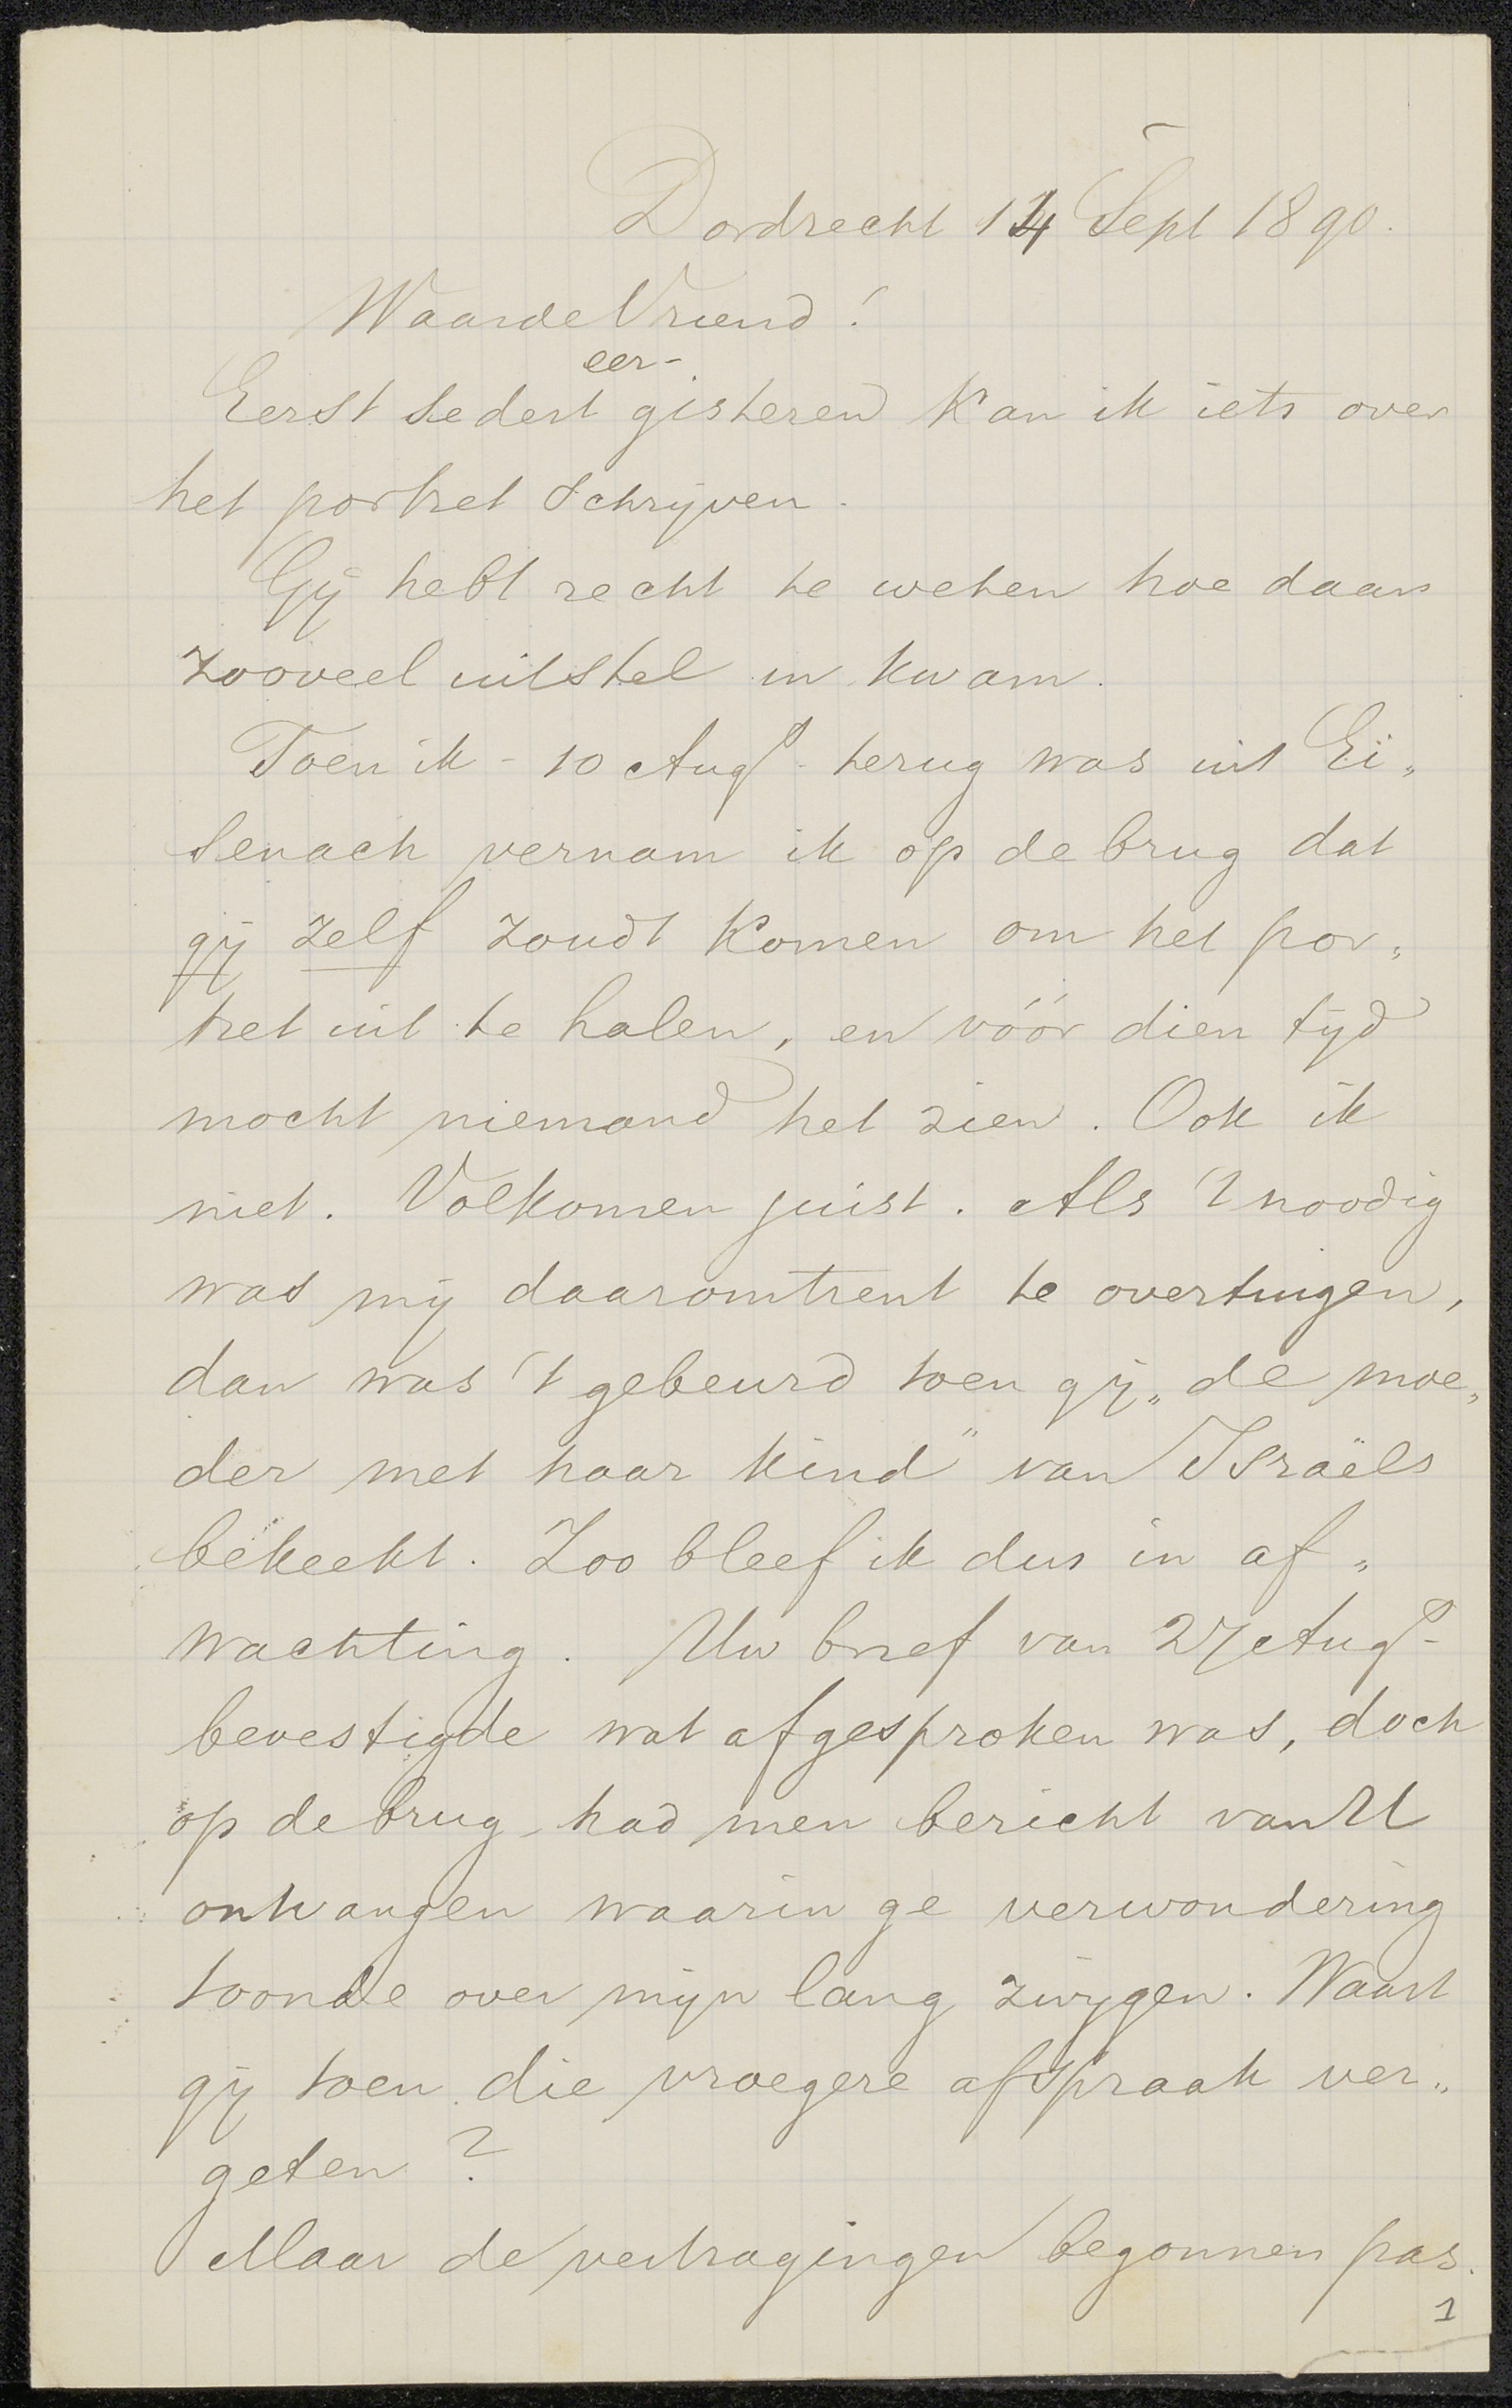 Dordrecht 14 Sept 1890.
Waarde Vriend!
eer-
Eerst sedert gisteren kan ik iets over
het portret schrijven.
Gij hebt recht te weten hoe daar
zooveel uitstel in kwam.
Toen ik - 10 Augs - terug was uit Ei„
senach vernam ik op de brug dat
gij zelf zoudt komen om het por„
tret uit te halen, en vóór dien tijd
mocht niemand het zien. Ook ik
niet. Volkomen juist. Als 't noodig
was mij daaromtrent te overtuigen,
dan was 't gebeurd toen gij „de moe„
der met haar kind" van Israëls
bekeekt. Zoo bleef ik dus in af„
wachting. Uw brief van 27 Augs -
bevestigde wat afgesproken was, doch
op de brug had men bericht van U
ontvangen waarin ge verwondering
toonde over mijn lang zwijgen. Waart
gij toen die vroegere afspraak ver„
geten?
Maar de vertragingen begonnen pas.
1